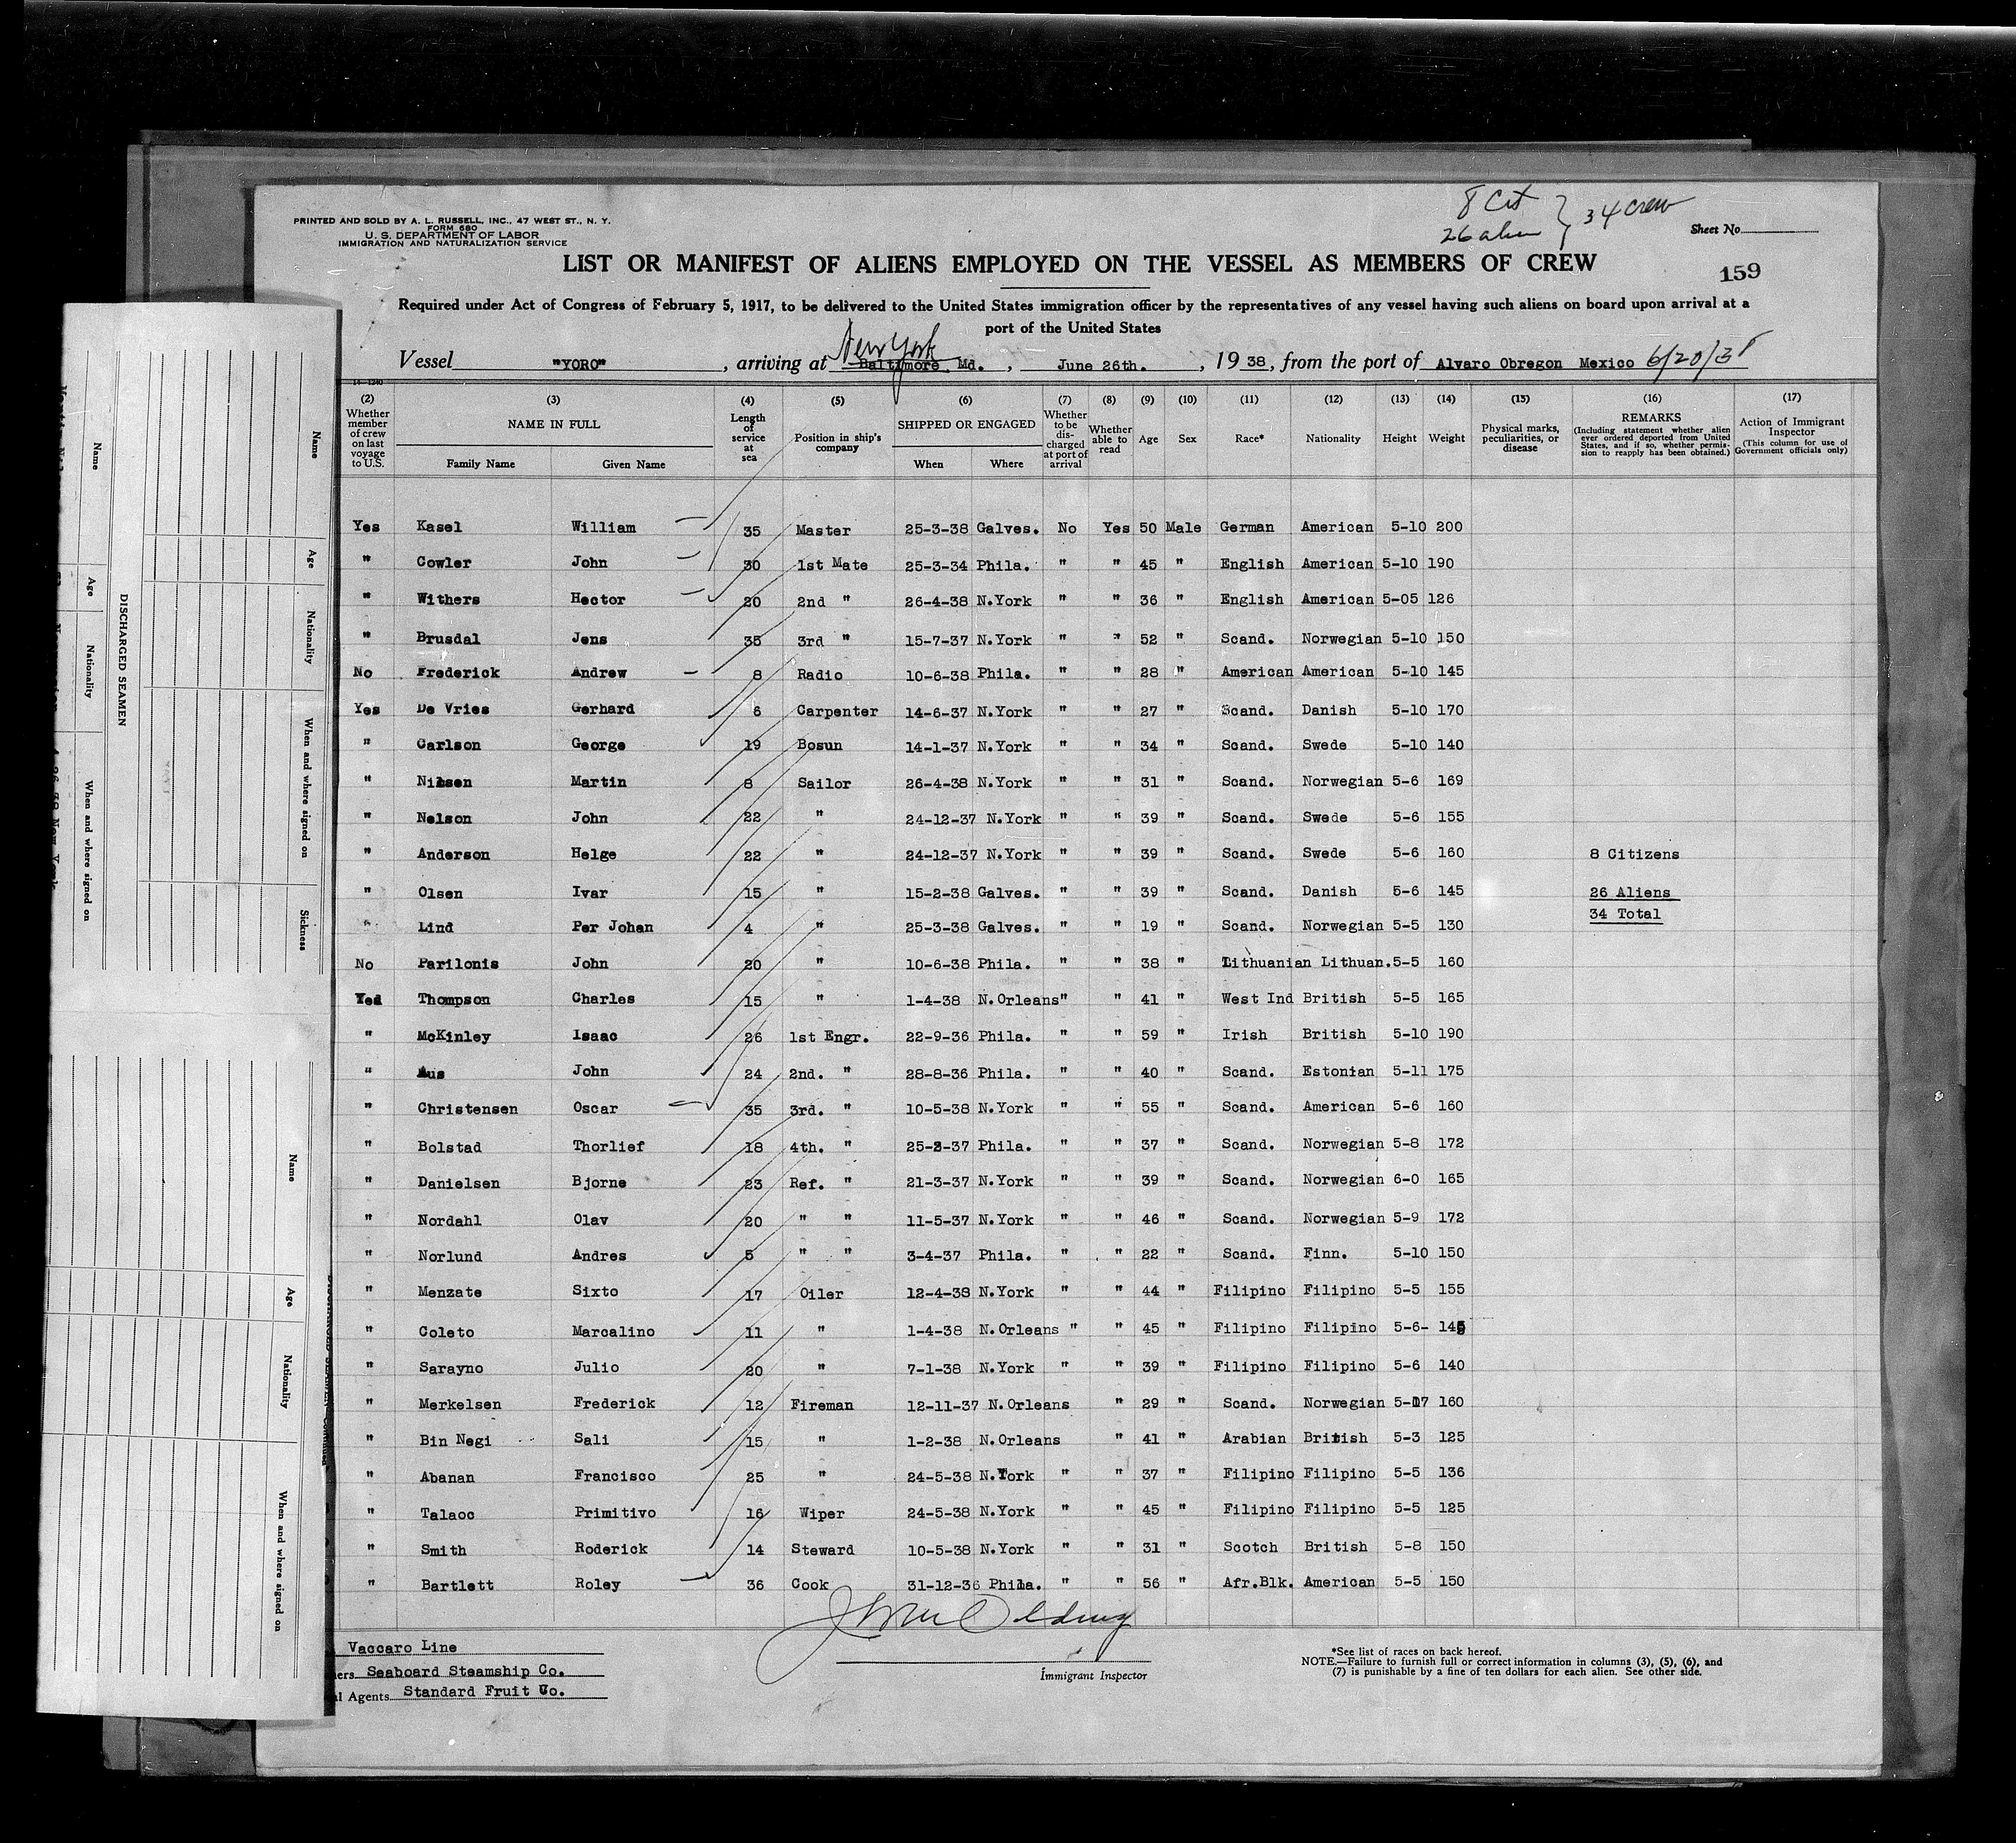 8 Cit
26 alien } 34 crew
PRINTED AND SOLD BY A. L. RUSSELL, INC., 47 WEST ST., N. Y.
FORM 680
U. S. DEPARTMENT OF LABOR
IMMIGRATION AND NATURALIZATION SERVICE
Sheet No.
LIST OR MANIFEST OF ALIENS EMPLOYED ON THE VESSEL AS MEMBERS OF CREW
159
Required under Act of Congress of February 5, 1917, to be delivered to the United States immigration officer by the representatives of any vessel having such aliens on board upon arrival at a
port of the United States
New York
Vessel "YORO", arriving at Baltimore Md., June 26th., 19 38, from the port of Alvaro Obregon Mexico 6/20/38
14-1240
(2) (3) (4) (5) (6) (7) (8) (9) (10) (11) (12) (13) (14) (15) (16) (17)
Whether member of crew on last voyage to U.S. NAME IN FULL Family Name Given Name Length of service at sea Position in ship's company SHIPPED OR ENGAGED When Where Whether to be discharged at port of arrival Whether able to read Age Sex Race* Nationality Height Weight Physical marks, peculiarities, or disease REMARKS (Including statement whether alien ever ordered deported from United States, and if so, whether permission to reapply has been obtained.) Action of Immigrant Inspector (This column for use of Government officials only)
Yes Kasel William 35 Master 25-3-38 Galves. No Yes 50 Male German American 5-10 200
" Cowler John 30 1st Mate 25-3-34 Phila. " " 45 " English American 5-10 190
" Withers Hector 20 2nd " 26-4-38 N.York " " 36 " English American 5-05 126
" Brusdal Jens 35 3rd " 15-7-37 N.York " " 52 " Scand. Norwegian 5-10 150
No Frederick Andrew 8 Radio 10-6-38 Phila. " " 28 " American American 5-10 145
Yes De Vries Gerhard 6 Carpenter 14-6-37 N.York " " 27 " Scand. Danish 5-10 170
" Carlson George 19 Bosun 14-1-37 N.York " " 34 " Scand. Swede 5-10 140
" Nilsen Martin 8 Sailor 26-4-38 N.York " " 31 " Scand. Norwegian 5-6 169
" Nelson John 22 " 24-12-37 N.York " " 39 " Scand. Swede 5-6 155
" Anderson Helge 22 " 24-12-37 N.York " " 39 " Scand. Swede 5-6 160 8 Citizens
" Olsen Ivar 15 " 15-2-38 Galves. " " 39 " Scand. Danish 5-6 145 26 Aliens
34 Total
" Lind Per Johan 4 " 25-3-38 Galves. " " 19 " Scand. Norwegian 5-5 130
No Parilonis John 20 " 10-6-38 Phila. " " 38 " Lithuanian Lithuan. 5-5 160
Yes Thompson Charles 15 " 1-4-38 N.Orleans " " 41 " West Ind British 5-5 165
" McKinley Isaac 26 1st Engr. 22-9-36 Phila. " " 59 " Irish British 5-10 190
" Aus John 24 2nd. " 28-8-36 Phila. " " 40 " Scand. Estonian 5-11 175
" Christensen Oscar 35 3rd. " 10-5-38 N.York " " 55 " Scand. American 5-6 160
" Bolstad Thorlief 18 4th. " 25-3-37 Phila. " " 37 " Scand. Norwegian 5-8 172
" Danielsen Bjorne 23 Ref. " 21-3-37 N.York " " 39 " Scand. Norwegian 6-0 165
" Nordahl Olav 20 " " 11-5-37 N.York " " 46 " Scand. Norwegian 5-9 172
" Norlund Andres 5 " " 3-4-37 Phila. " " 22 " Scand. Finn. 5-10 150
" Menzate Sixto 17 Oiler 12-4-38 N.York " " 44 " Filipino Filipino 5-5 155
" Coleto Marcalino 11 " 1-4-38 N.Orleans " " 45 " Filipino Filipino 5-6- 145
" Sarayno Julio 20 " 7-1-38 N.York " " 39 " Filipino Filipino 5-6 140
" Merkelsen Frederick 12 Fireman 12-11-37 N.Orleans " 29 " Scand. Norwegian 5-7 160
" Bin Negi Sali 15 " 1-2-38 N.Orleans " 41 " Arabian British 5-3 125
" Abanan Francisco 25 " 24-5-38 N.York " " 37 " Filipino Filipino 5-5 136
" Talaoc Primitivo 16 Wiper 24-5-38 N.York " " 45 " Filipino Filipino 5-5 125
" Smith Roderick 14 Steward 10-5-38 N.York " " 31 " Scotch British 5-8 150
" Bartlett Roley 36 Cook 31-12-36 Phila. " " 56 " Afr.Blk. American 5-5 150
Vaccaro Line
Seaboard Steamship Co.
Agents Standard Fruit Co.
Immigrant Inspector
*See list of races on back hereof.
NOTE.—Failure to furnish full or correct information in columns (3), (5), (6), and
(7) is punishable by a fine of ten dollars for each alien. See other side.
DISCHARGED SEAMEN
Name Age Nationality When and where signed on
Name Age Nationality When and where signed on Sickness
Name Age Nationality When and where signed on